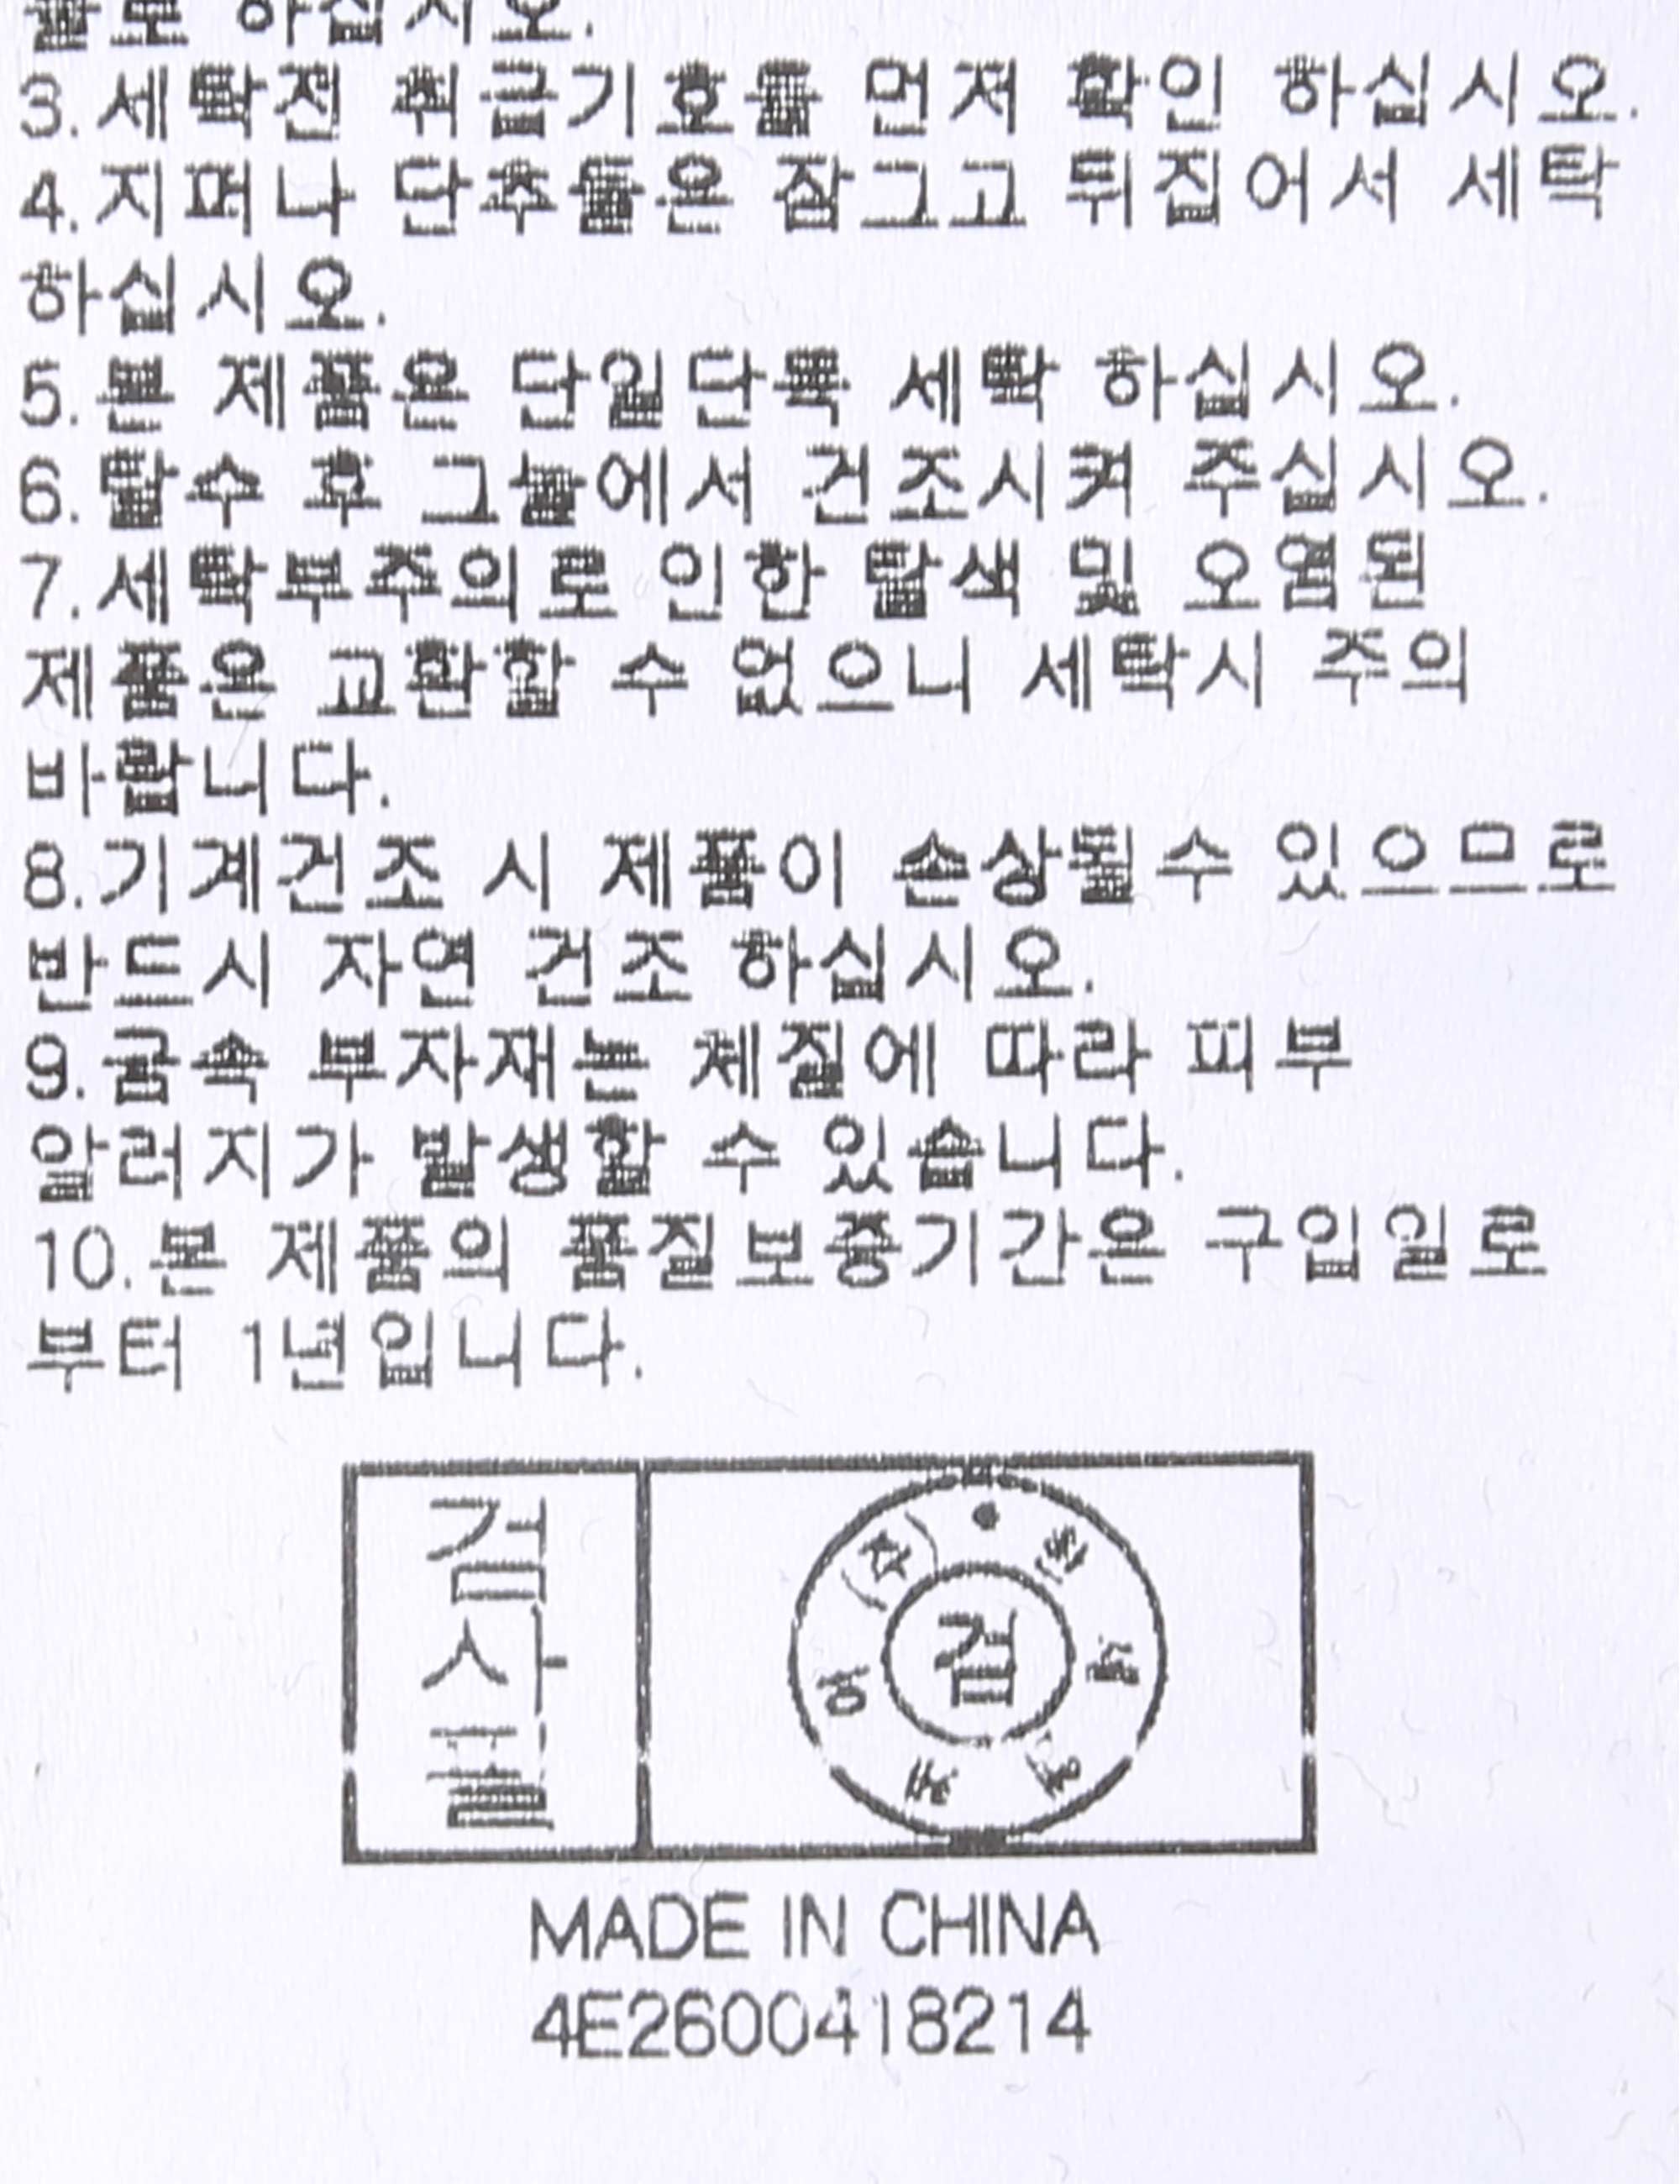 하십시오.
3.세탁전 취급기호를 먼저 확인 하십시오.
4.지퍼나 단추들은 잠그고 뒤집어서 세탁
하십시오.
5.본 제품은 단일단독 세탁 하십시오.
6.탈수 후 그늘에서 건조시켜 주십시오.
7.세탁부주의로 인한 탈색 및 오염된
제품은 교환할 수 없으니 세탁시 주의
바랍니다.
8.기계건조 시 제품이 손상될수 있으므로
반드시 자연 건조 하십시오.
9.금속 부자재는 체질에 따라 피부
알러지가 발생할 수 있습니다.
10.본 제품의 품질보증기간은 구입일로
부터 1년입니다.
검
사
필
검
MADE IN CHINA
4E2600418214